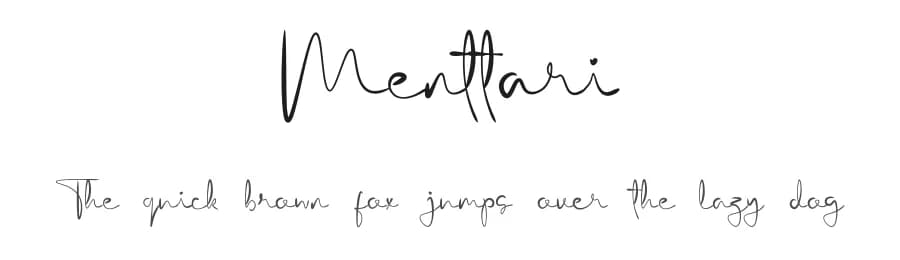 Menttari
The quick brown fox jumps over the lazy dog